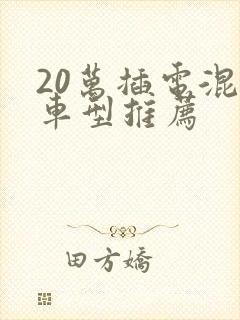 20萬插電混
車型推薦
田方嬌